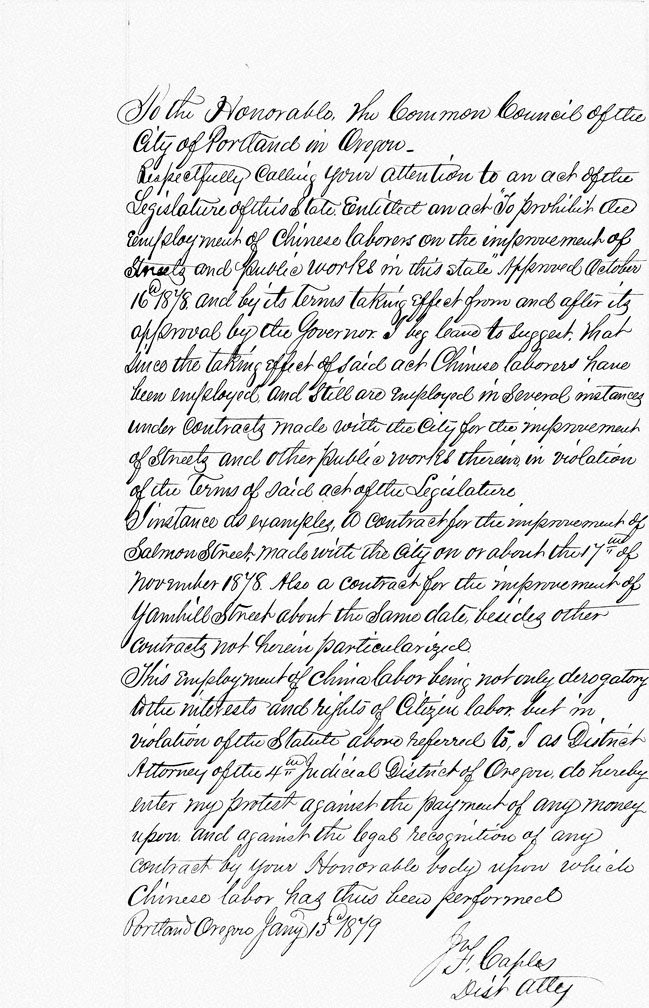 To the Honorable, the Common Council of the
City of Portland in Oregon_
Respectfully Calling your attention to an act of the
Legislature of this State. Entitled an act "To prohibit the
employment of Chinese laborers on the improvement of
Streets and public works in this state" Approved October
16th 1878. and by its terms taking effect from and after its
approval by the Governor. I beg leave to suggest, that
since the taking effect of said act Chinese laborers have
been employed and still are employed in several instances
under contracts made with the City for the improvement
of Streets and other public works therein, in violation
of the terms of said act of the Legislature
I instance as examples, a contract for the improvement of
Salmon Street, made with the City on or about the 17th of
November 1878. Also a contract for the improvement of
Yamhill Street about the same date, besides other
contracts not herein particularized.
This employment of China labor being not only derogatory
to the interests and rights of Citizen labor, but in
violation of the Statute above referred to, I as District
Attorney of the 4th Judicial District of Oregon, do hereby
enter my protest against the payment of any money
upon, and against the legal recognition of any
contract by your Honorable body upon which
Chinese labor has thus been performed
Portland Oregon Jany 15th 1879
Jno F. Caples
Dist Atty